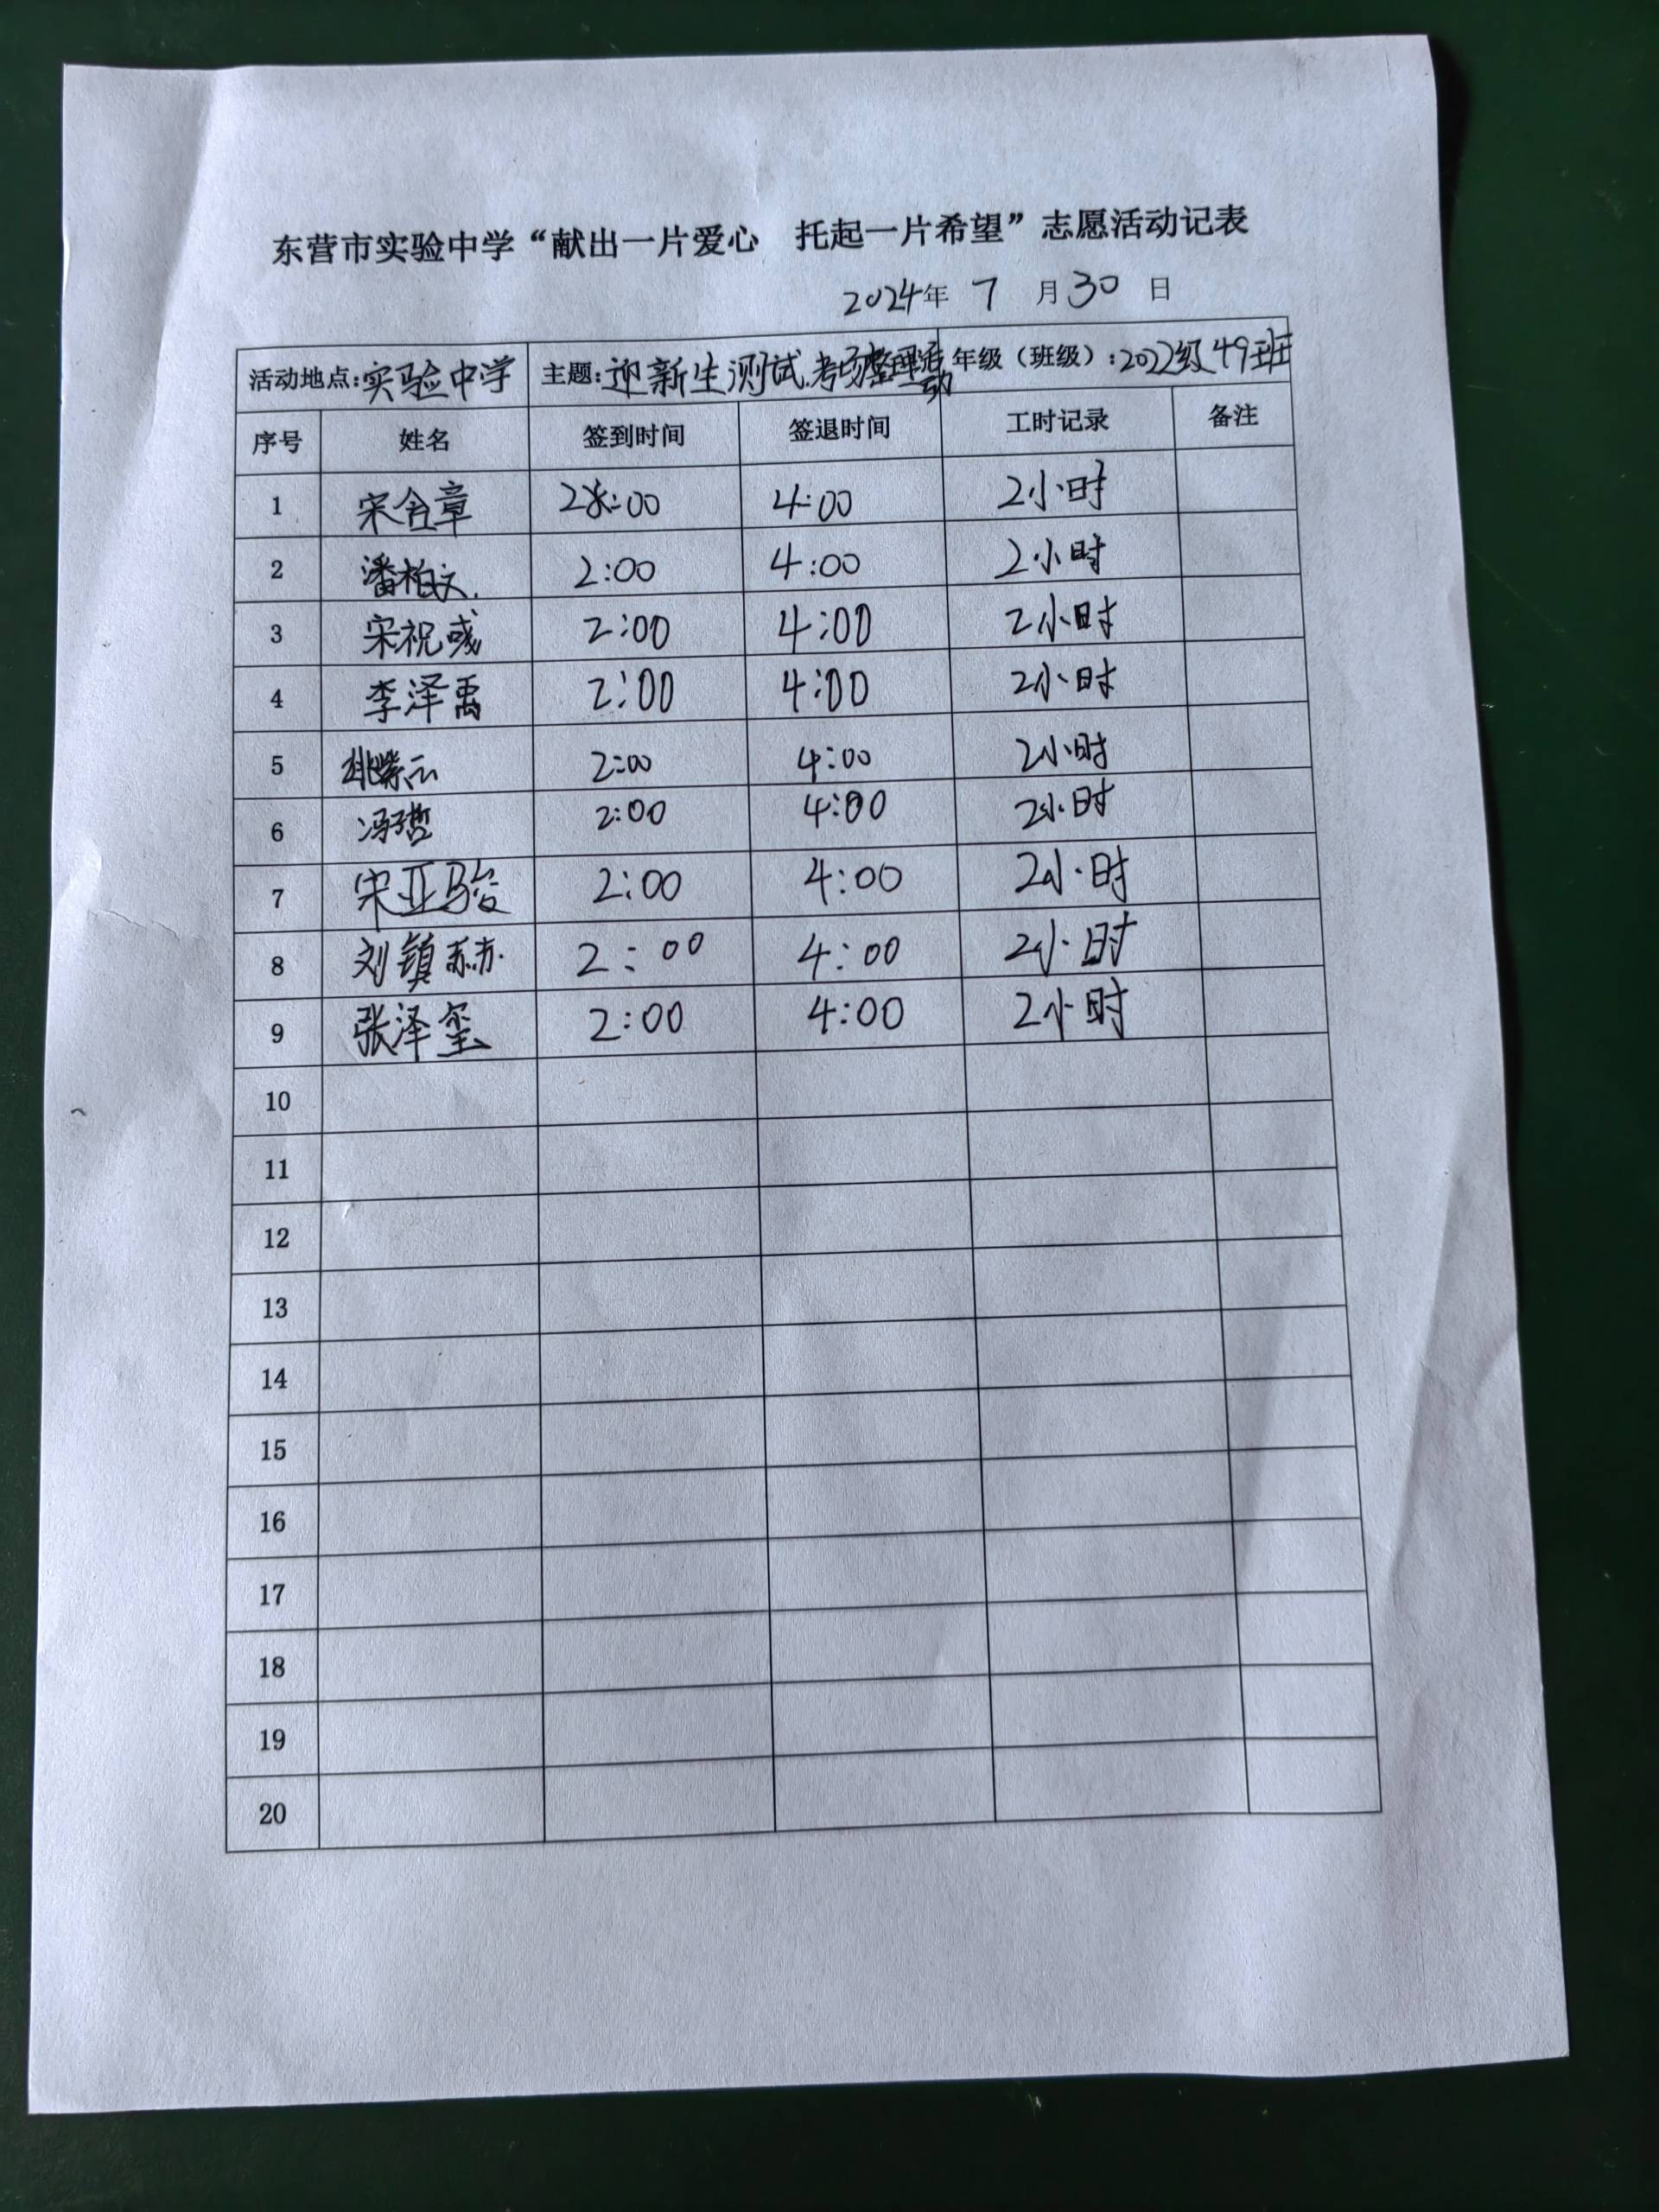 东营市实验中学“献出一片爱心 托起一片希望”志愿活动记表
2024年 7 月 30 日
活动地点:实验中学 主题:迎新生测试.考场整理活动 年级（班级）:2022级49班
序号 姓名 签到时间 签退时间 工时记录 备注
1 宋含章 2:00 4:00 2小时
2 潘柏文. 2:00 4:00 2小时
3 宋祝彧 2:00 4:00 2小时
4 李泽禹 2:00 4:00 2小时
5 2:00 4:00 2小时
6 冯子哲 2:00 4:00 2小时
7 宋亚骏 2:00 4:00 2小时
8 刘镇赫 2:00 4:00 2小时
9 张泽玺 2:00 4:00 2小时
10
11
12
13
14
15
16
17
18
19
20